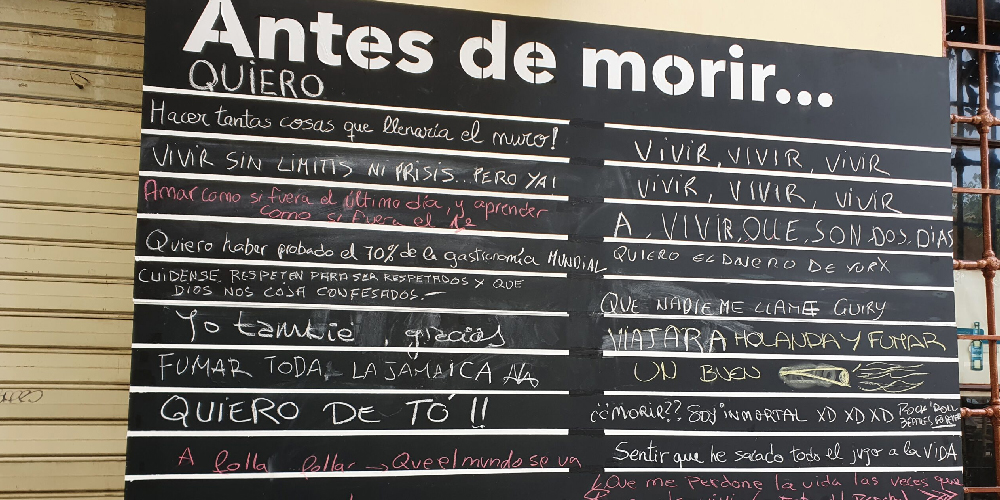 Antes de morir...
QUIERO
Hacer tantas cosas que llenaría el muro!
VIVIR SIN LIMITIS NI PRISIS.. PERO YA!
Amar como si fuera el último día, y aprender
como si fuera el 1º
Quiero haber probado el 70% de la gastronomía MUNDIAL
CUIDENSE RESPETEN PARA SER RESPETADOS Y QUE
DIOS NOS COJA CONFESADOS.-
Yo tambie, gracias
FUMAR TODA LA JAMAICA
QUIERO DE TÓ !!
A folla follar → Que el mundo se va
VIVIR, VIVIR, VIVIR
VIVIR, VIVIR, VIVIR
A VIVIR, QUE SON DOS DIAS
QUIERO EL DINERO DE
QUE NADIE ME LLAME GUIRY
VIAJAR A HOLANDA Y FUMAR
UN BUEN
¿¿MORIR?? SOY INMORTAL XD XD XD ROCK'ROLL
BEATLES
Sentir que he sacado todo el jugo a la VIDA
¿Que me perdone la vida las veces que